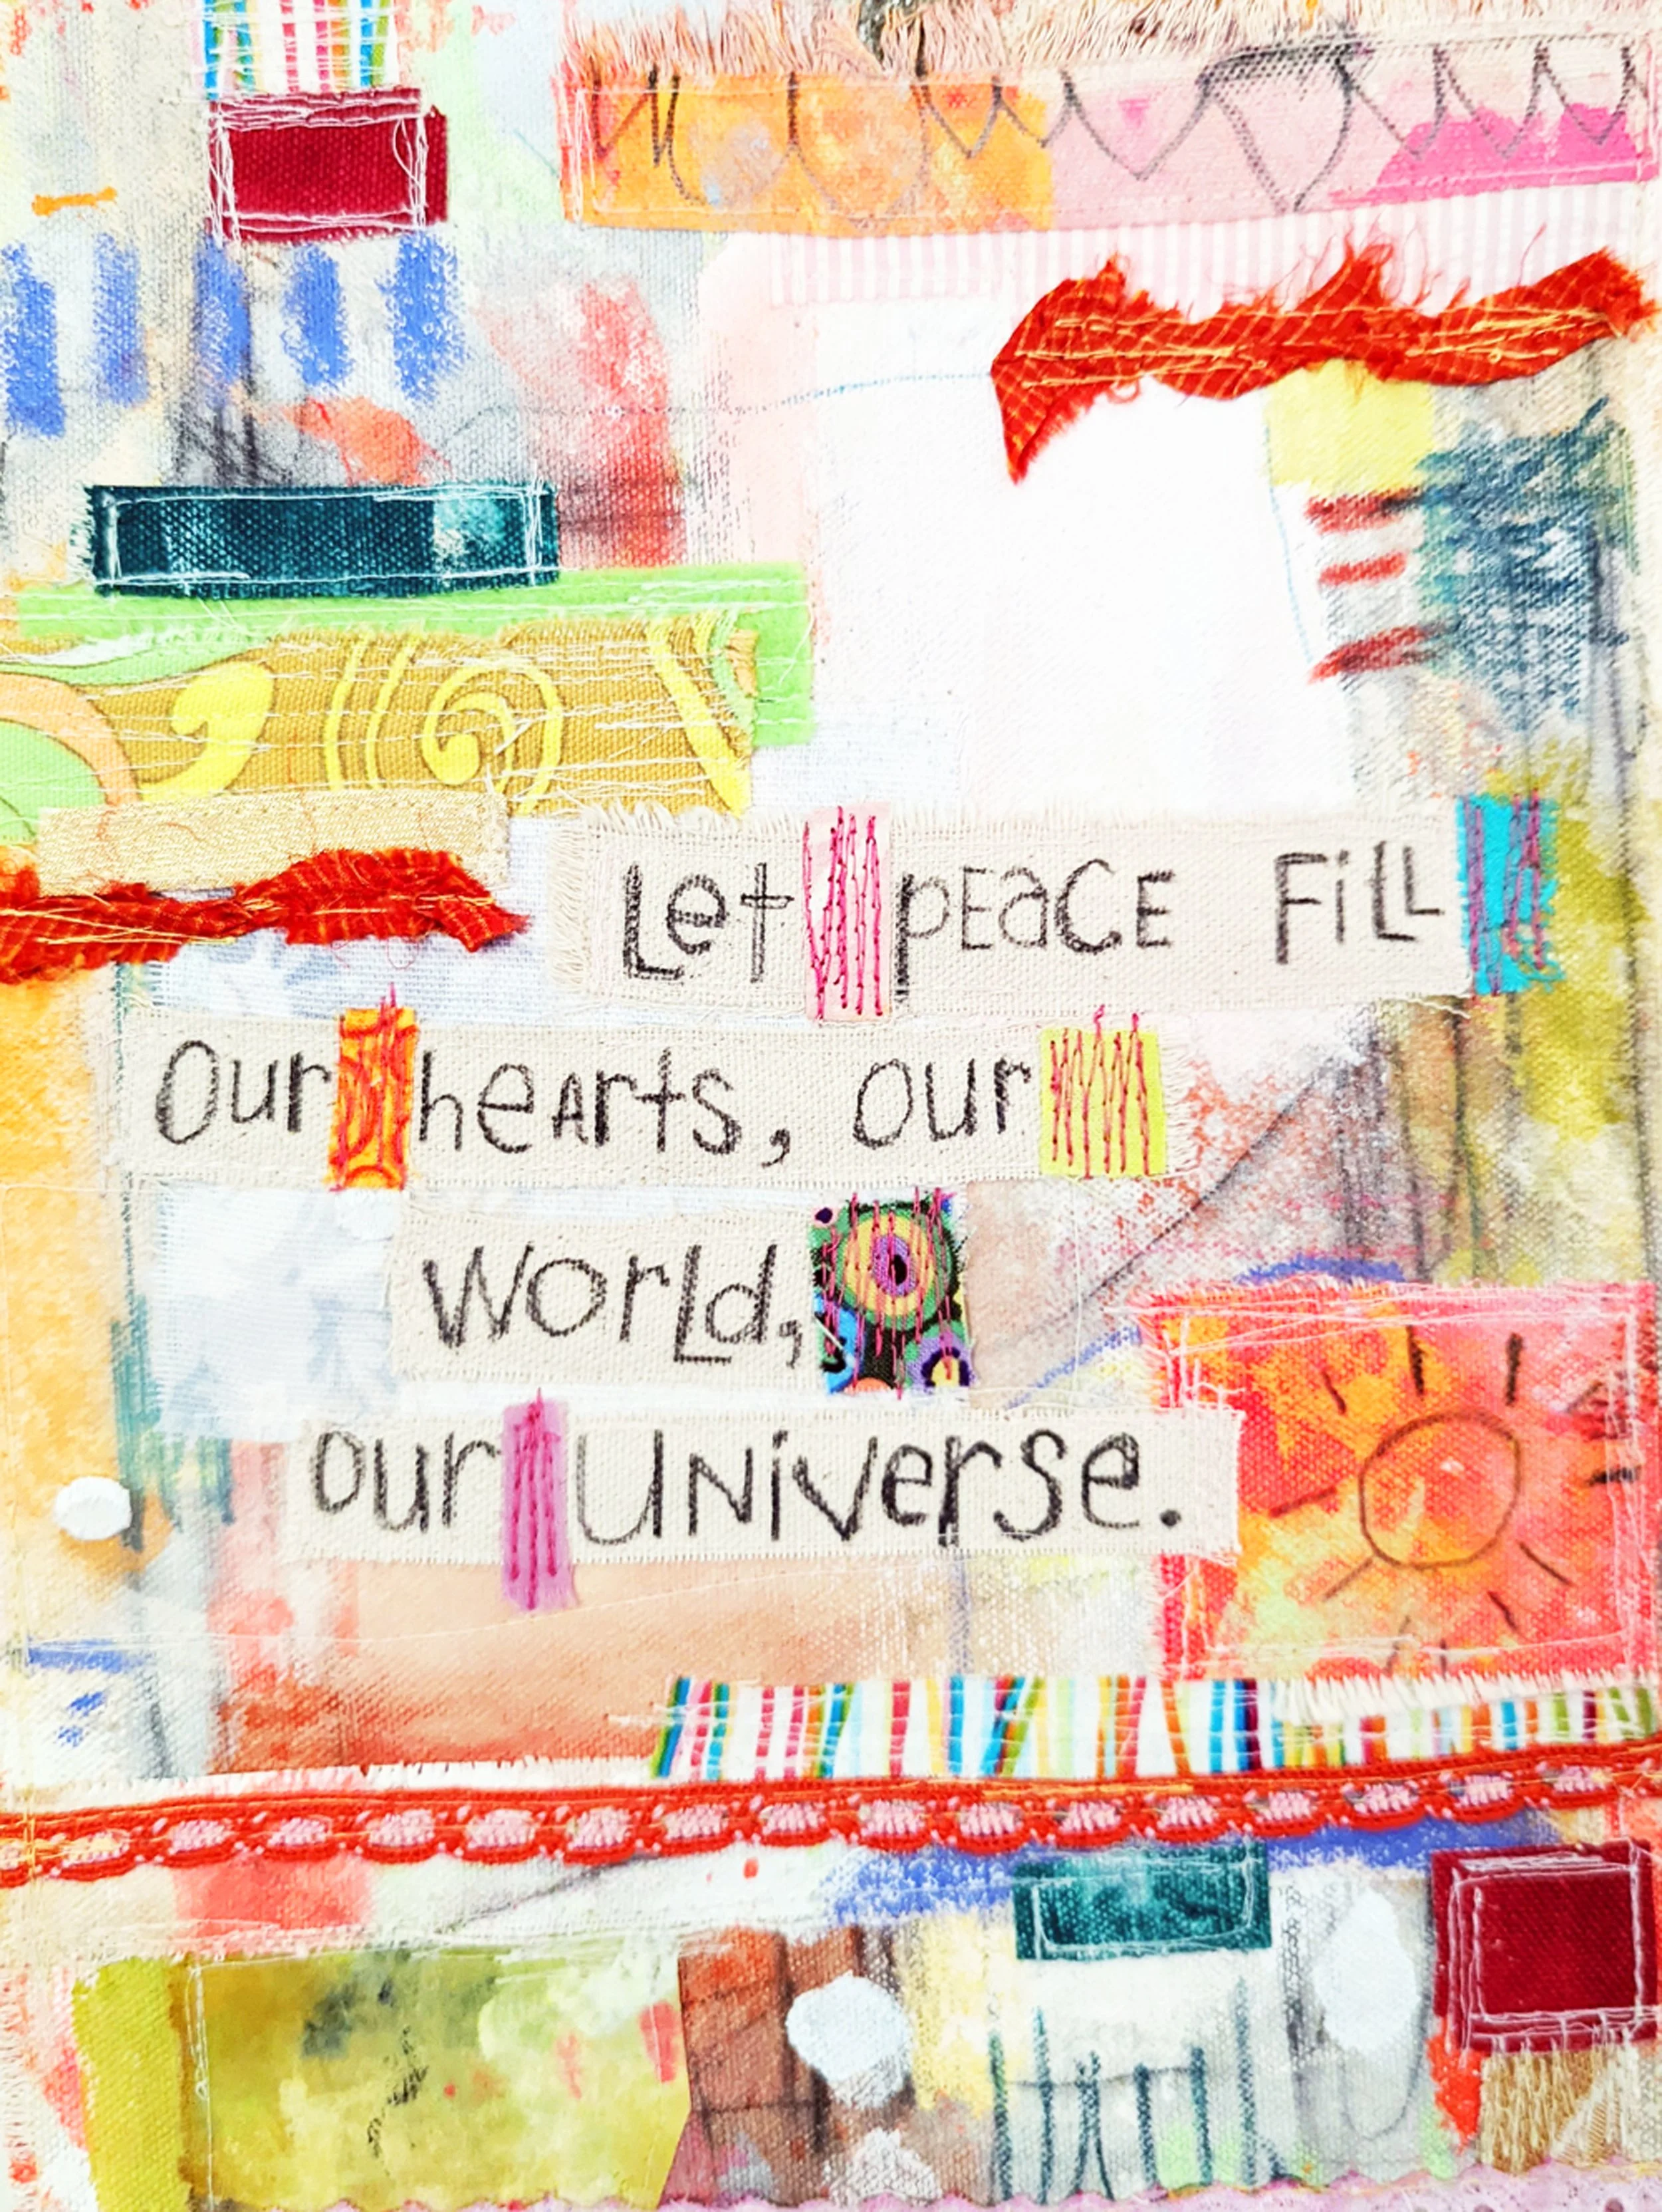 Let pEaCE FiLL
Our heArts, our
WorLd,
our UNiVerse.